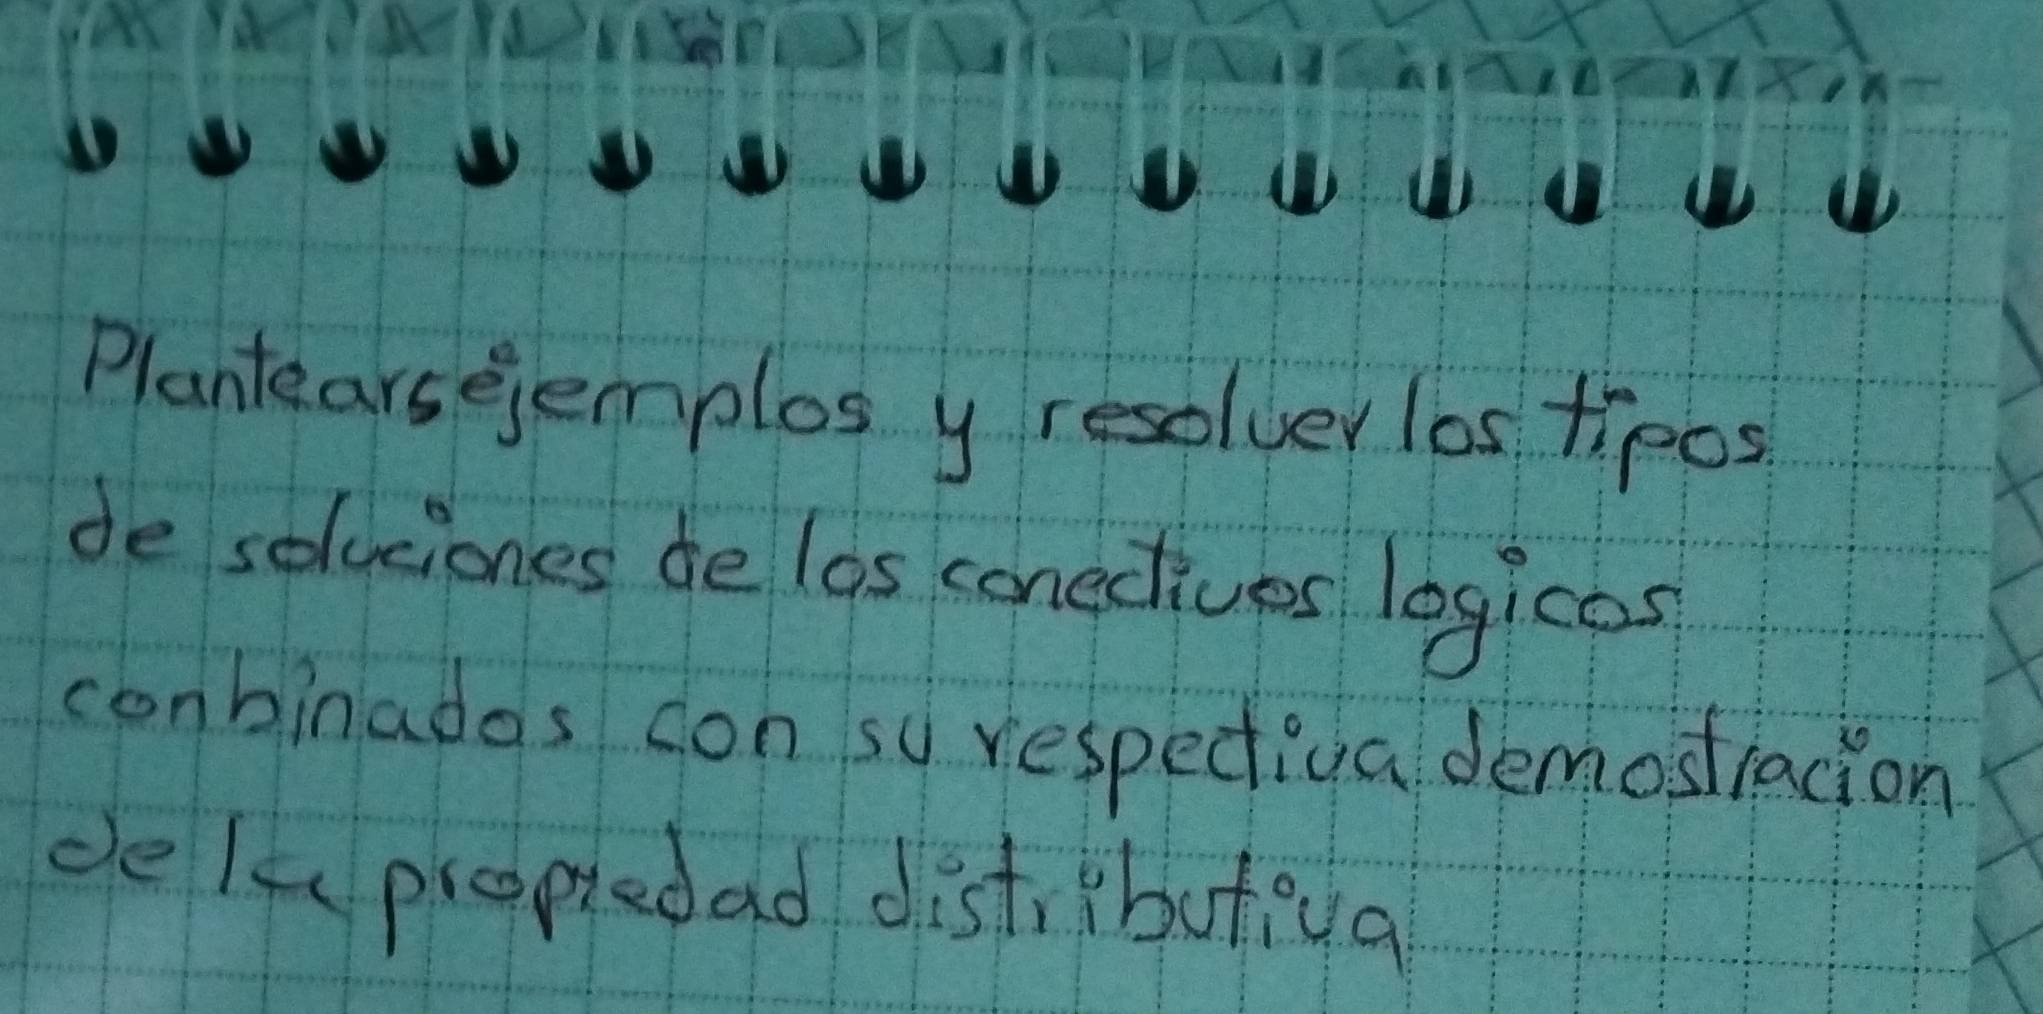 Plantearse ejemplos y resolver los tipos
de soluciones de los conectivos logicos
conbinados con su respectiva demostracion
de la propiedad distributiva